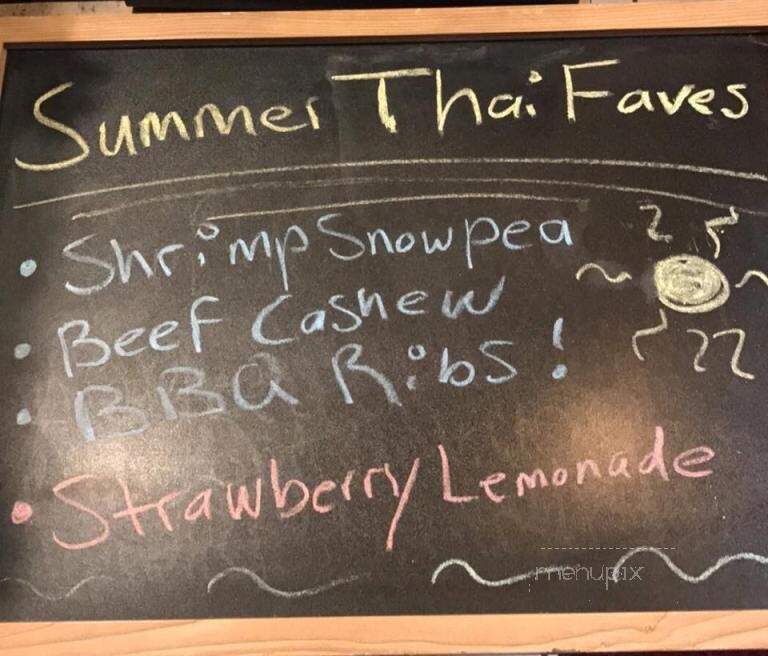 Summer Thai Faves
• Shrimp Snowpea
• Beef Cashew
• BBQ Ribs!
• Strawberry Lemonade
menupix